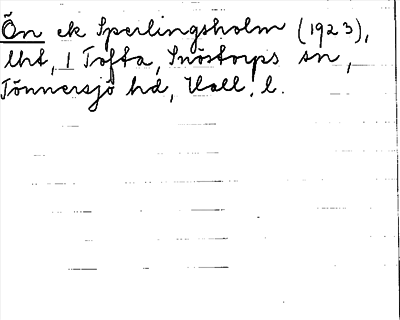 Ön ek Sperlingsholm (1923),
lht, 1 Tofta, Snöstorps sn,
Tönnersjö hd, Hall. l.